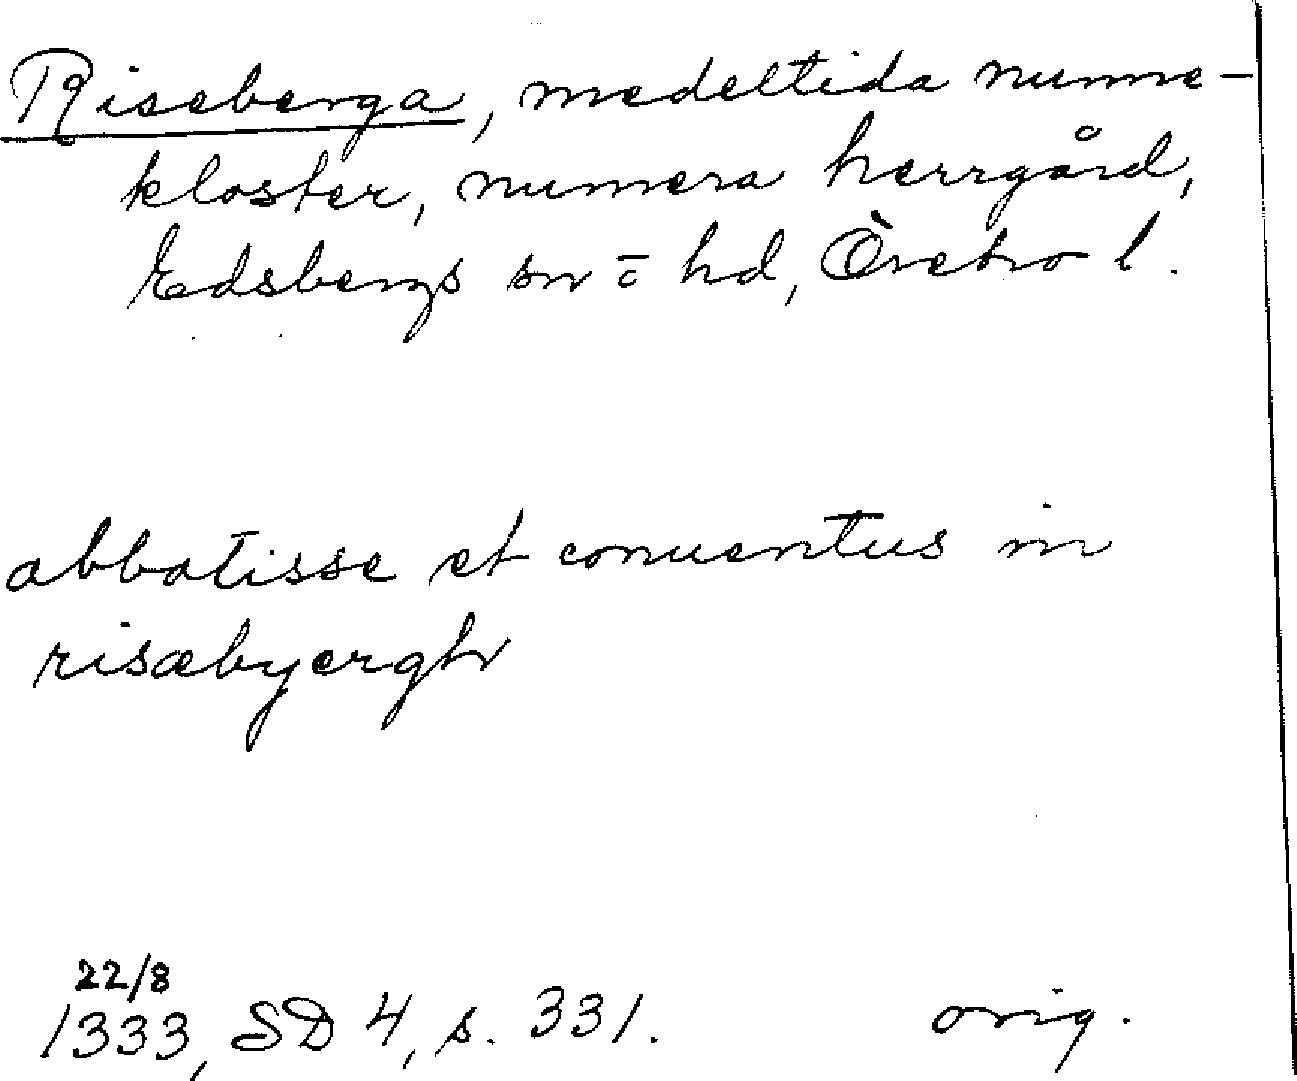 Riseberga, medeltida nunne-
kloster, numera herrgård,
Edsbergs sn o hd, Örebro l.
abbatisse et conuentus in
risæbyergh
22/8
1333, SD 4, s. 331. orig.